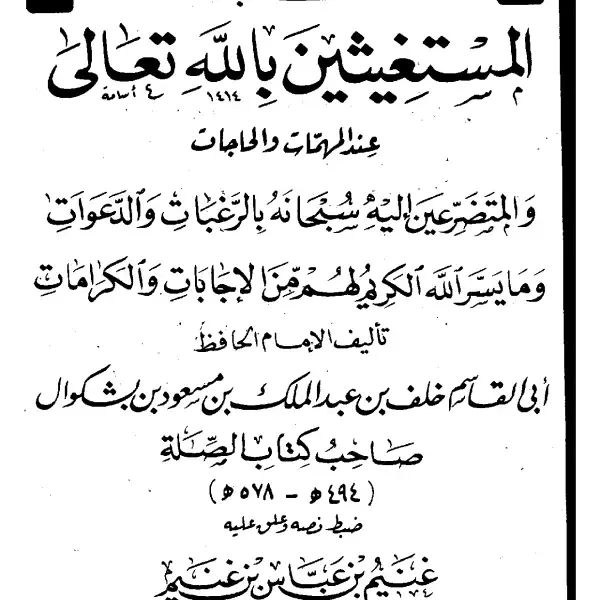 المستغيثين بالله تعالى
عند المهمات والحاجات
وَالمتَضَرِّعين إليهِ سُبْحَانَهُ بِالرَّغَبَاتِ وَالدَّعَوَاتِ
وَمَا يَسَّرَ اللّه الكريمُ لَهُمْ مِّنَ الإجَابَاتِ وَالكَرَامَاتِ
تأليف الإمام الحافظ
أبي القاسم خلف بن عبد الملك بن مسعود بن بشكوال
صَاحِبُ كِتَابِ الصِّلَةِ
(٤٩٤ هـ - ٥٧٨ هـ)
ضبط نصه وعلق عليه
غنيم بن عبّاس بن غنيم